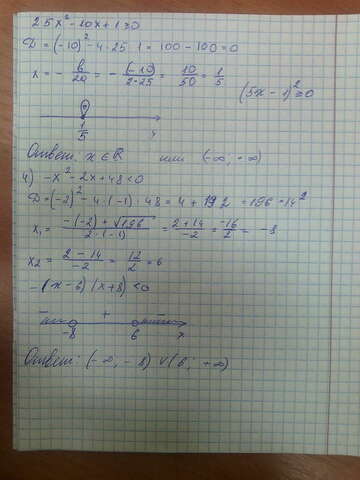 25x² - 10x + 1 ≥ 0
D = (-10)² - 4 · 25 · 1 = 100 - 100 = 0
x = - b/2a = - (-10)/2·25 = 10/50 = 1/5
(5x - 1)² ≥ 0
1/5 x
Ответ: x ∈ R или (-∞; +∞)
4) -x² - 2x + 48 < 0
D = (-2)² - 4 · (-1) · 48 = 4 + 192 = 196 = 14²
x₁ = -(-2) + √196 / 2·(-1) = 2 + 14 / -2 = -16/2 = -8
x₂ = 2 - 14 / -2 = 12/2 = 6
-(x - 6)(x + 8) < 0
- + -
-8 6 x
Ответ: (-∞, -8) ∪ (6; +∞)